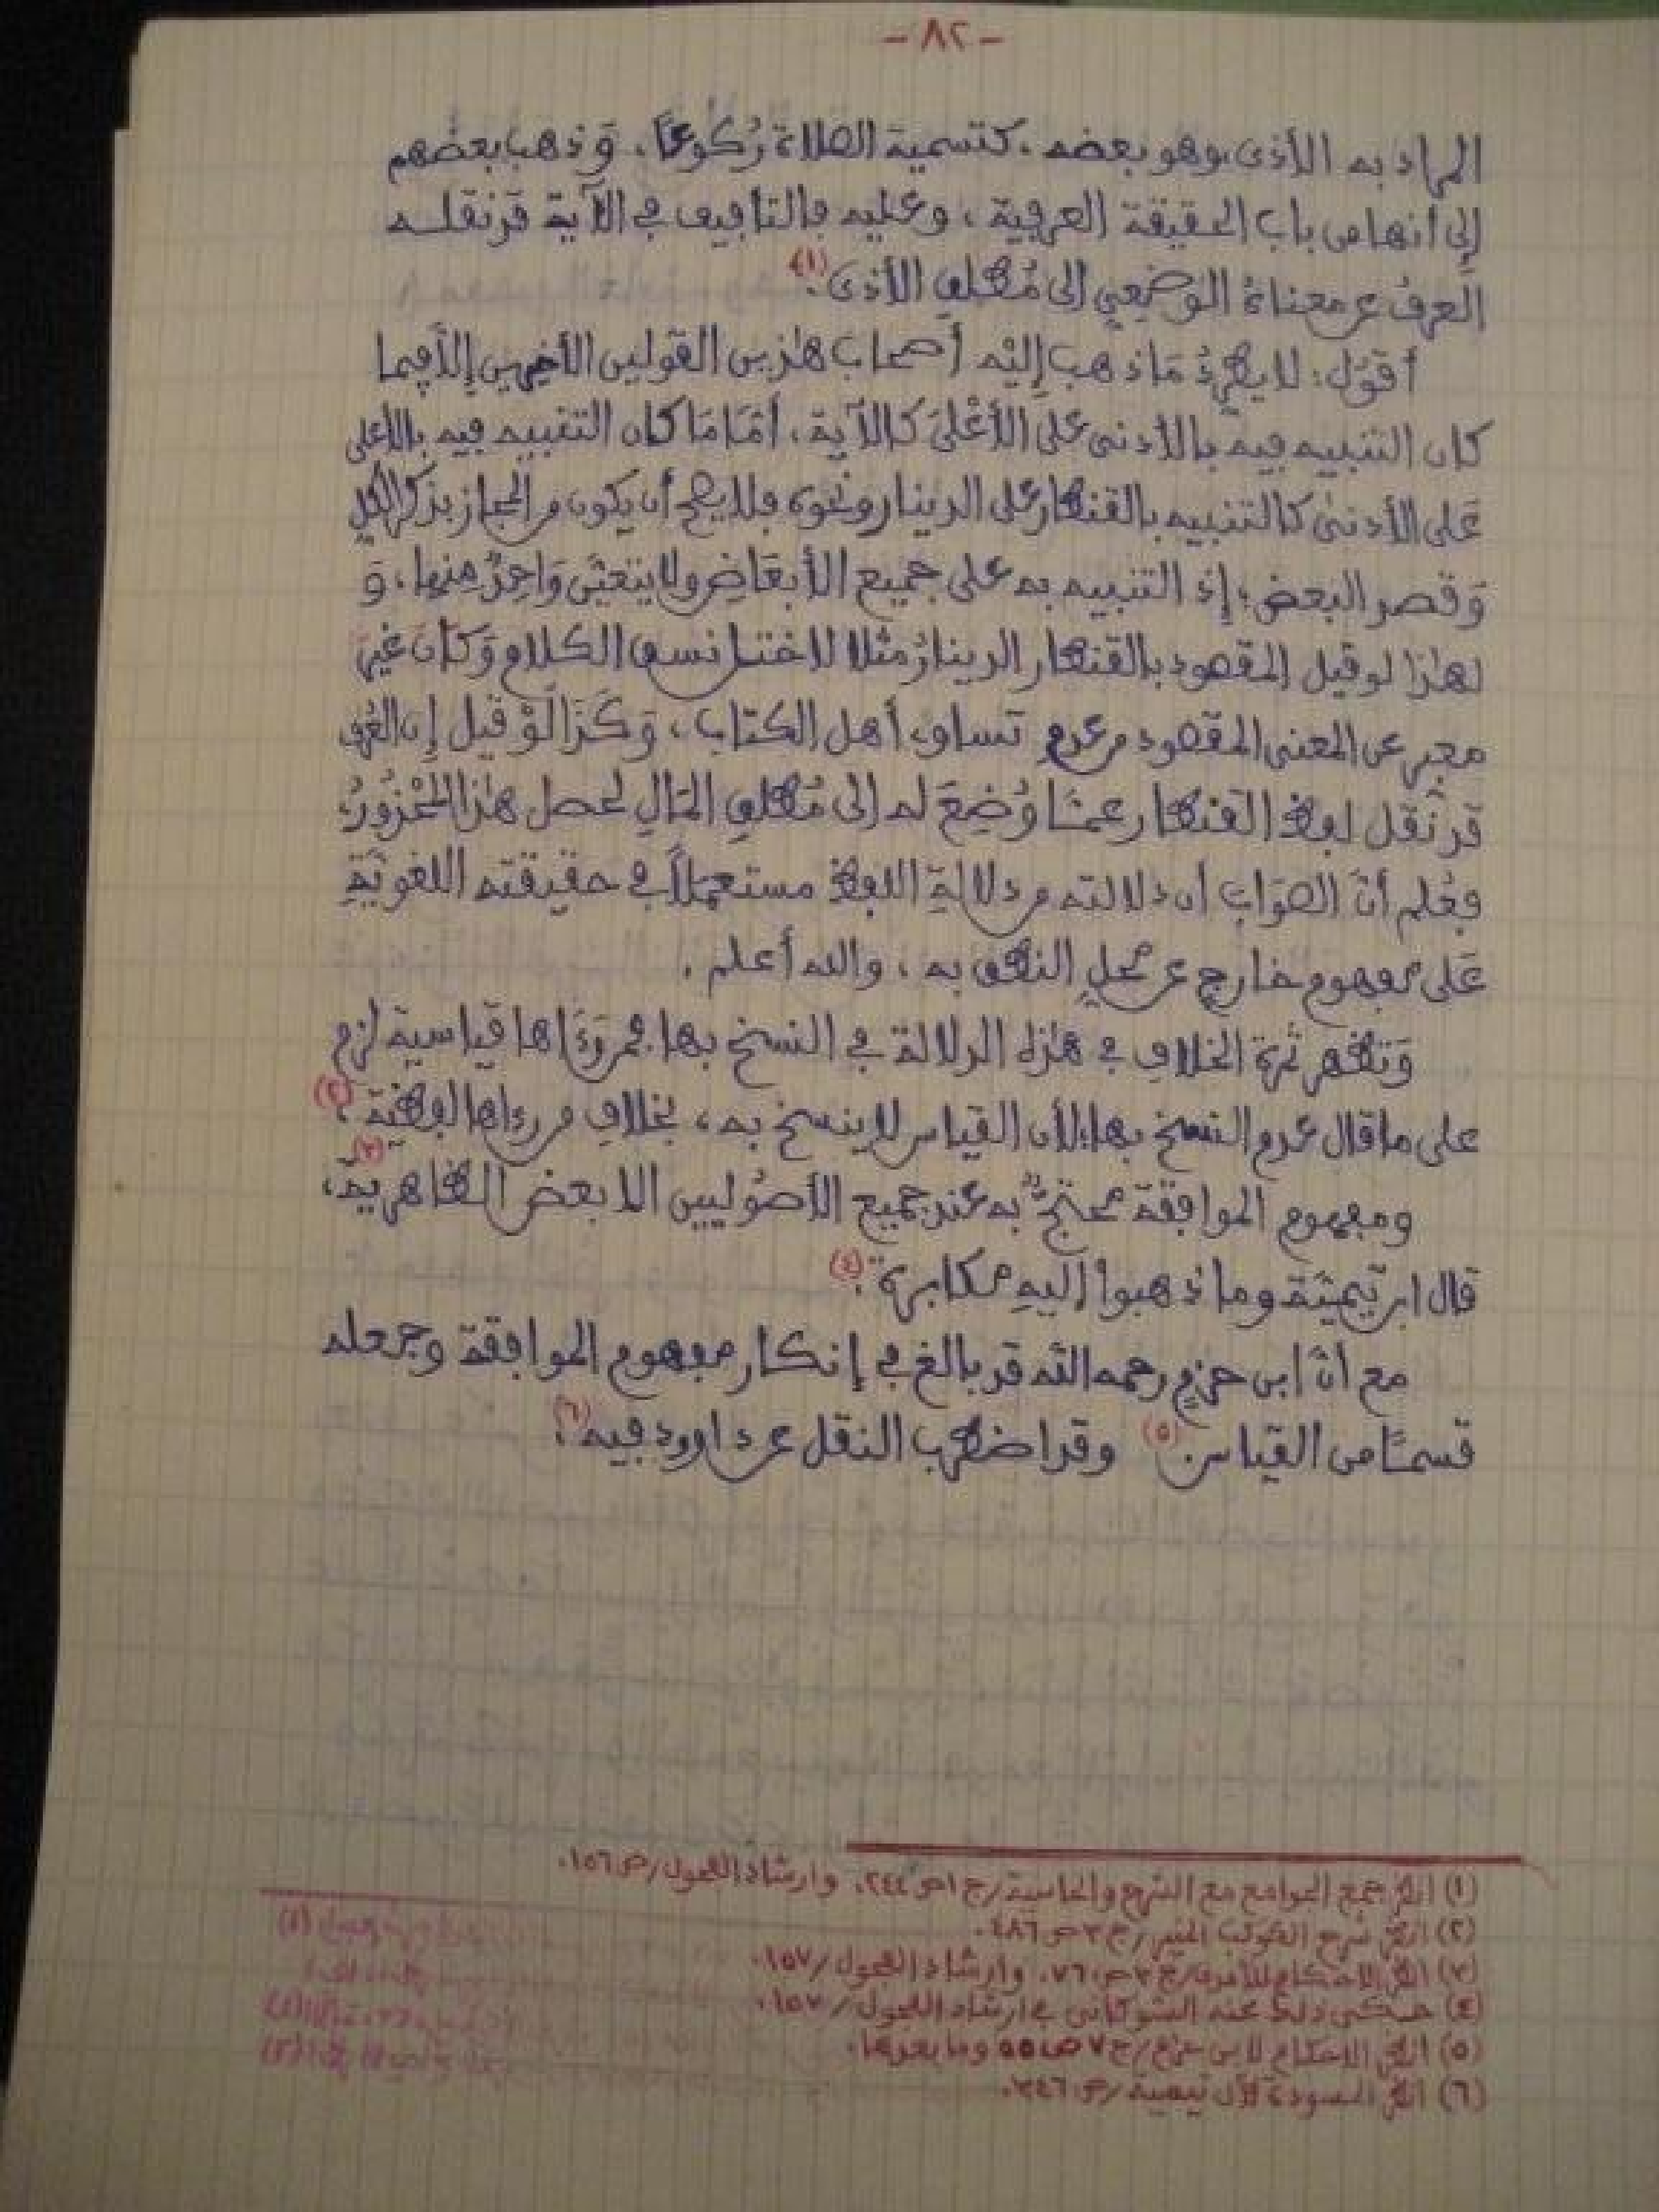 - ٨٢ -
المراد به الأذى، وهو بعضه، كتسمية الصلاة رُكوعاً، وَذهب بعضهم
إلى أنها من باب الحقيقة العرفية، وعليه فالتأفيف في الآية قد نقلـه
العرفُ عن معناهُ الوَضعِي إلى مُطلقِ الأذى.(١)
أقوُل: لا يطّرِدُ مَاذهب إليْه أصحاب هٰذين القولين الأخيرين إلاَّ فيما
كان التنبيه فيه بالأدنى علَى الأعْلَىَ كالآية، أمَّا مَا كان التنبيه فيه بالأعلى
عَلى الأدنىٰ كالتنبيه بالقنطار على الدينار ونحوه فلا يصح أن يكون من المجاز بذكر الكلِ
وَقصد البعض؛ إذ التنبيه به على جميع الأبعَاضِ ولا يتعيّن وَاحِدٌ منها، وَ
لهٰذا لو قيل المقصود بالقنطار الدينارُ مثلا لاختل نسق الكلام وَكان غيرَ
معبر عن المعنى المقصود من عدم تساوي أهل الكتاب، وَكَذَا لَوْ قيل إن العُرف
قد نقل لفظ القنطار عمـَّا وُضِعَ له إلى مُطلقِ المَالِ لحصل هٰذا المحْذُورُ،
فعُلم أنّ الصوَابَ أن دلالته من دلالةِ اللفظ مستعمَلاً في حقيقته اللغويَّةِ
عَلى مفهوم خارجٍ عن محلِ النطق به، والله أعلم.
وَتظهر ثمرة الخلافِ في هٰذه الدلالة في النسخ بها فمن رَءَاها قياسية لزم
على ما قال عدم النسخ بها؛ لأن القياس لا ينسخ به، بخلافِ من رءاها لفظيّة.(٢)
ومفهوم الموافقة محتجٌّ به عند جميع الأصُوليين إلا بعض الظاهرية،(٣)
قال ابن تيميَّة وما ذهبوا إليهِ مكابرة.(٤)
مع أنّ ابن حزمٍ رحمه الله قد بالغ في إنكار مفهوم الموافقة وجعله
قسمـًا من القياس.(٥) وقد اضطرب النقل عن داوود فيه.(٦)
(١) انظر جمع الجوامع مع الشرح والحاشية/ج١ص٢٤٤، وارشاد الفحول/ص١٥٦.
(٢) انظر شرح الكوكب المنير/ج٣ص٤٨٦.
(٣) انظر الاحكام للآمدي/ج٣ص٧٦، وارشاد الفحول/١٥٧.
(٤) حـكى ذلك عنه الشوكاني في ارشاد الفحول/١٥٧.
(٥) انظر الاحكام لابن حزم/ج٧ص٥٥ وما بعدها.
(٦) انظر المسودة لآل تيمية/ص٣٤٦.